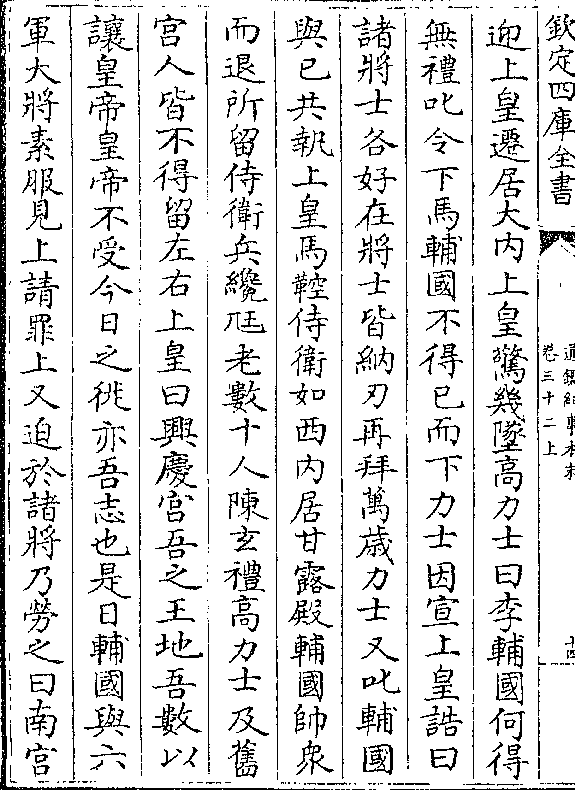 欽定四庫全書
通鑑紀事本末
卷三十二上
十四
迎上皇遷居大内上皇驚幾墜高力士曰李輔國何得
無禮叱令下馬輔國不得已而下力士因宣上皇誥曰
諸將士各好在將士皆納刃再拜萬歲力士又叱輔國
與已共執上皇馬鞚侍衛如西内居甘露殿輔國帥衆
而退所留侍衛兵纔尫老數十人陳玄禮高力士及舊
宫人皆不得留左右上皇曰興慶宫吾之王地吾數以
讓皇帝皇帝不受今日之徙亦吾志也是日輔國與六
軍大將素服見上請罪上又迫於諸將乃勞之曰南宫